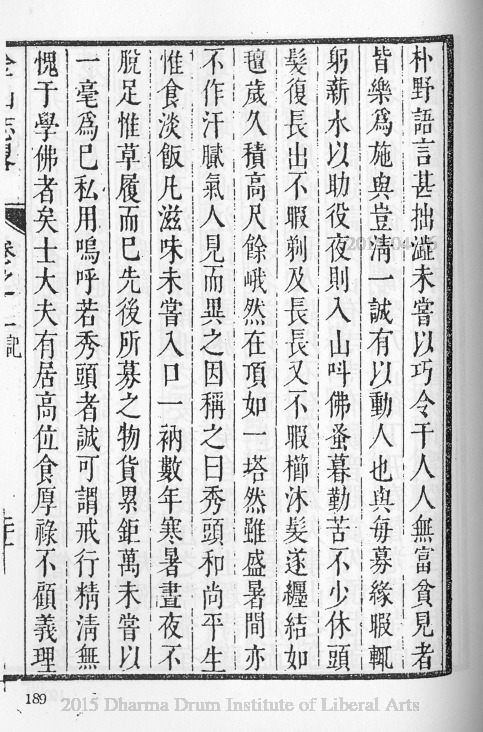 朴野語言甚拙澁未嘗以巧令干人人無富貧見者
皆樂爲施與豈清一誠有以動人也與每募緣暇輒
躬薪水以助役夜則入山呌佛蚤暮勤苦不少休頭
髮復長出不暇剃及長長又不暇櫛沐髮遂纒結如
氊歲久積高尺餘峨然在頂如一塔然雖盛暑間亦
不作汗膱氣人見而異之因稱之曰秀頭和尚平生
惟食淡飯凡滋味未嘗入口一衲數年寒暑晝夜不
脫足惟草履而已先後所募之物貨累鉅萬未嘗以
一毫爲己私用嗚呼若秀頭者誠可謂戒行精清無
愧于學佛者矣士大夫有居高位食厚祿不顧義理
金山志畧
卷之一記
189
2015 Dharma Drum Institute of Liberal Arts